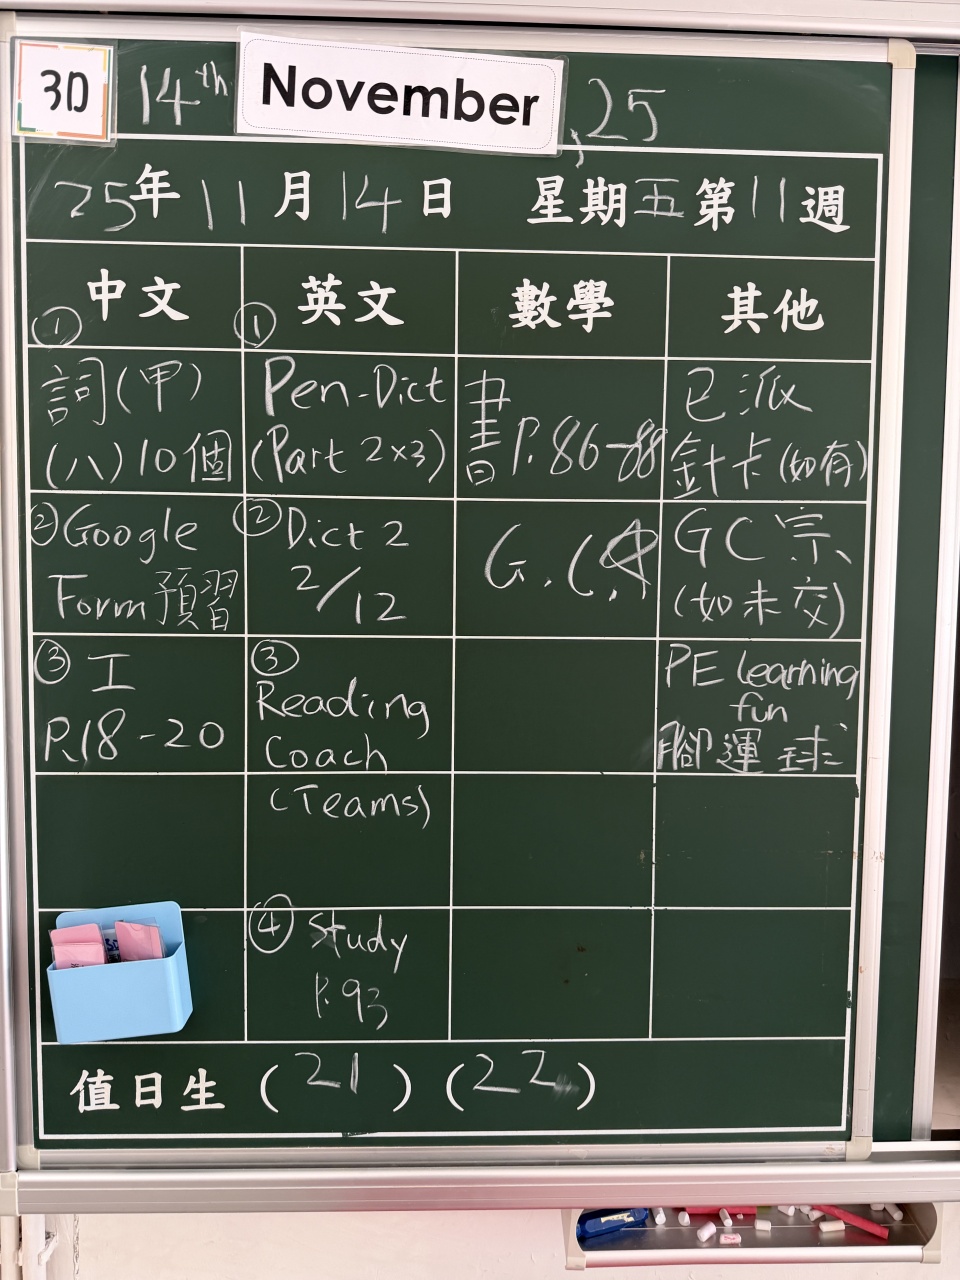 3D 14th November, 25
25年11月14日 星期五第11週
中文 英文 數學 其他
① ①
詞(甲)
(八)10個
②Google
Form預習
③ 工
P.18-20
Pen-Dict
(Part 2×3)
② Dict 2
2/12
③
Reading
Coach
(Teams)
④ Study
P.93
書P.86-88
G.C.
已派
針卡(如有)
GC宗
(如未交)
PE learning
fun
腳運球
值日生 (21) (22)